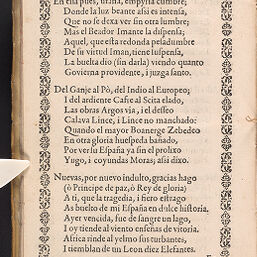 En esta pues, urania, empyria cumbre;
Donde la luz brante assi es intensa,
Que no se dexa ver sin otra lumbre;
Mas el Beador Imante la dispensa;
Aquel, que esta redonda pesadumbre
De su virtud Iman, tiene suspensa,
La buelta dio (sin darla) viendo quanto
Govierna providente, i juzga santo.
Del Ganje al Pò, del Indio al Europeo;
I del ardiente Cafre al Scita elado,
Las obras Argos via, i el desseo
Calava Lince, i Lince no manchado:
Quando el mayor Boanerge Zebedeo
En otra gloria huespeda bañado,
Por ver su España ya sin el prolixo
Yugo, i coyundas Moras; assi dixo.
Nuevas, por nuevo indulto, gracias hago
(ò Principe de paz, ò Rey de gloria)
A ti, que la tragedia, i fiero estrago
As buelto de mi España en dulce historia.
Ayer vencida, fue de sangre un lago,
I oy tiende al viento enseñas de vitoria.
Africa rinde al yelmo sus turbantes,
I tiemblan de un Leon diez Elefantes.